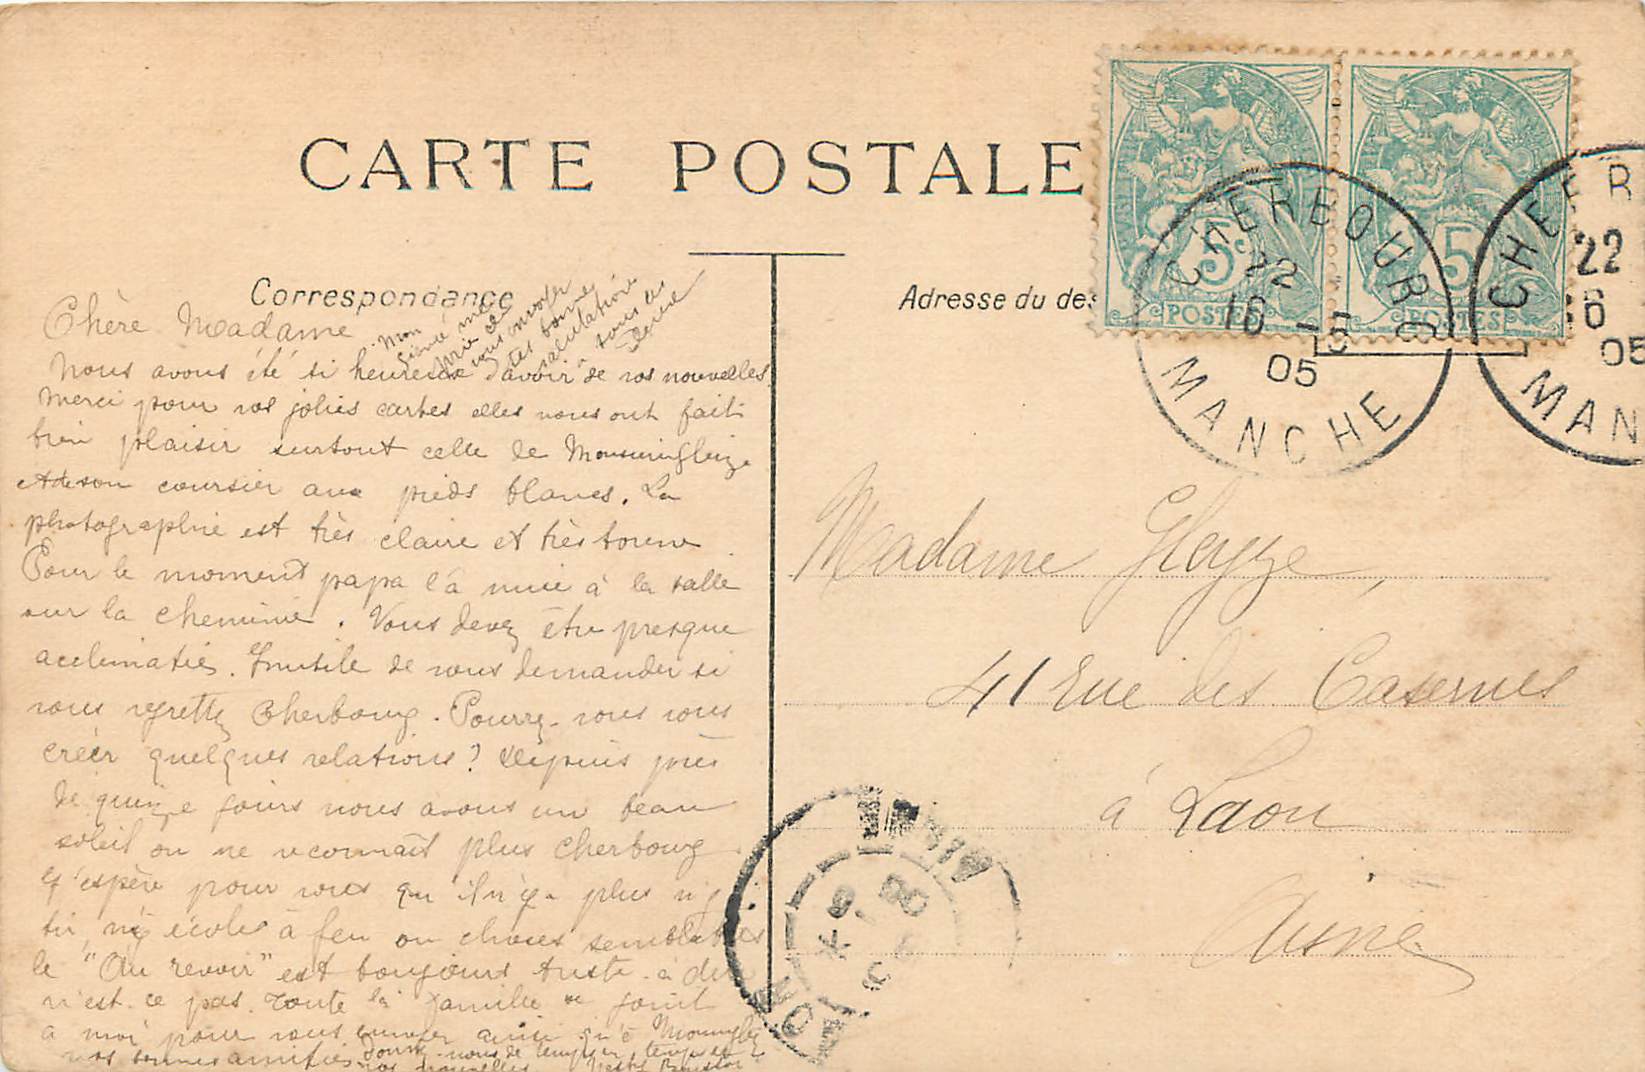 CARTE POSTALE
Correspondance
Adresse du des
5c
POSTES
5
POSTES
CHERBOURG
22
16 - 5
05
MANCHE
CHER
22
6
05
MAN
Chère Madame
Mon
vous envoyer
tes bonnes
salutations
tous les
deux
Nous avons été si heureuse d'avoir de vos nouvelles
Merci pour vos jolies cartes elles nous ont fait
bien plaisir surtout celle de Monsieur Gleize
et de son coursier aux pieds blancs. La
photographie est très claire et très bonne
Pour le moment papa l'a mise à la salle
sur la cheminée. Vous devez être presque
acclimatés. Inutile de vous demander si
vous regrettez Cherbourg. Pourrez-vous vous
créer quelques relations? Depuis près
de quinze jours nous avons un beau
soleil on ne reconnait plus Cherbourg
J'espère pour vous qu'il n'y a plus ni
tir, ni écoles à feu ou choses semblables
le "Au revoir" est toujours triste à dire
n'est-ce pas. Toute la famille se joint
à moi pour vous envoyer ainsi qu'à
nos bonnes amitiés. Donnez-nous de temps en temps
vos nouvelles
Madame Gleyze,
41 Rue des Casernes
à Laon
Aisne
LAON
AISNE